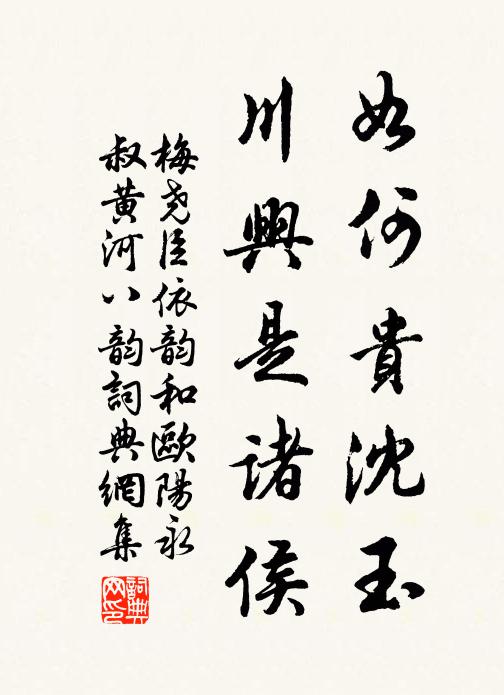 如何貴沈玉
川興是諸侯
梅尧臣依韵和歐陽永
叔黄河八韵詞典網集
詞典网印